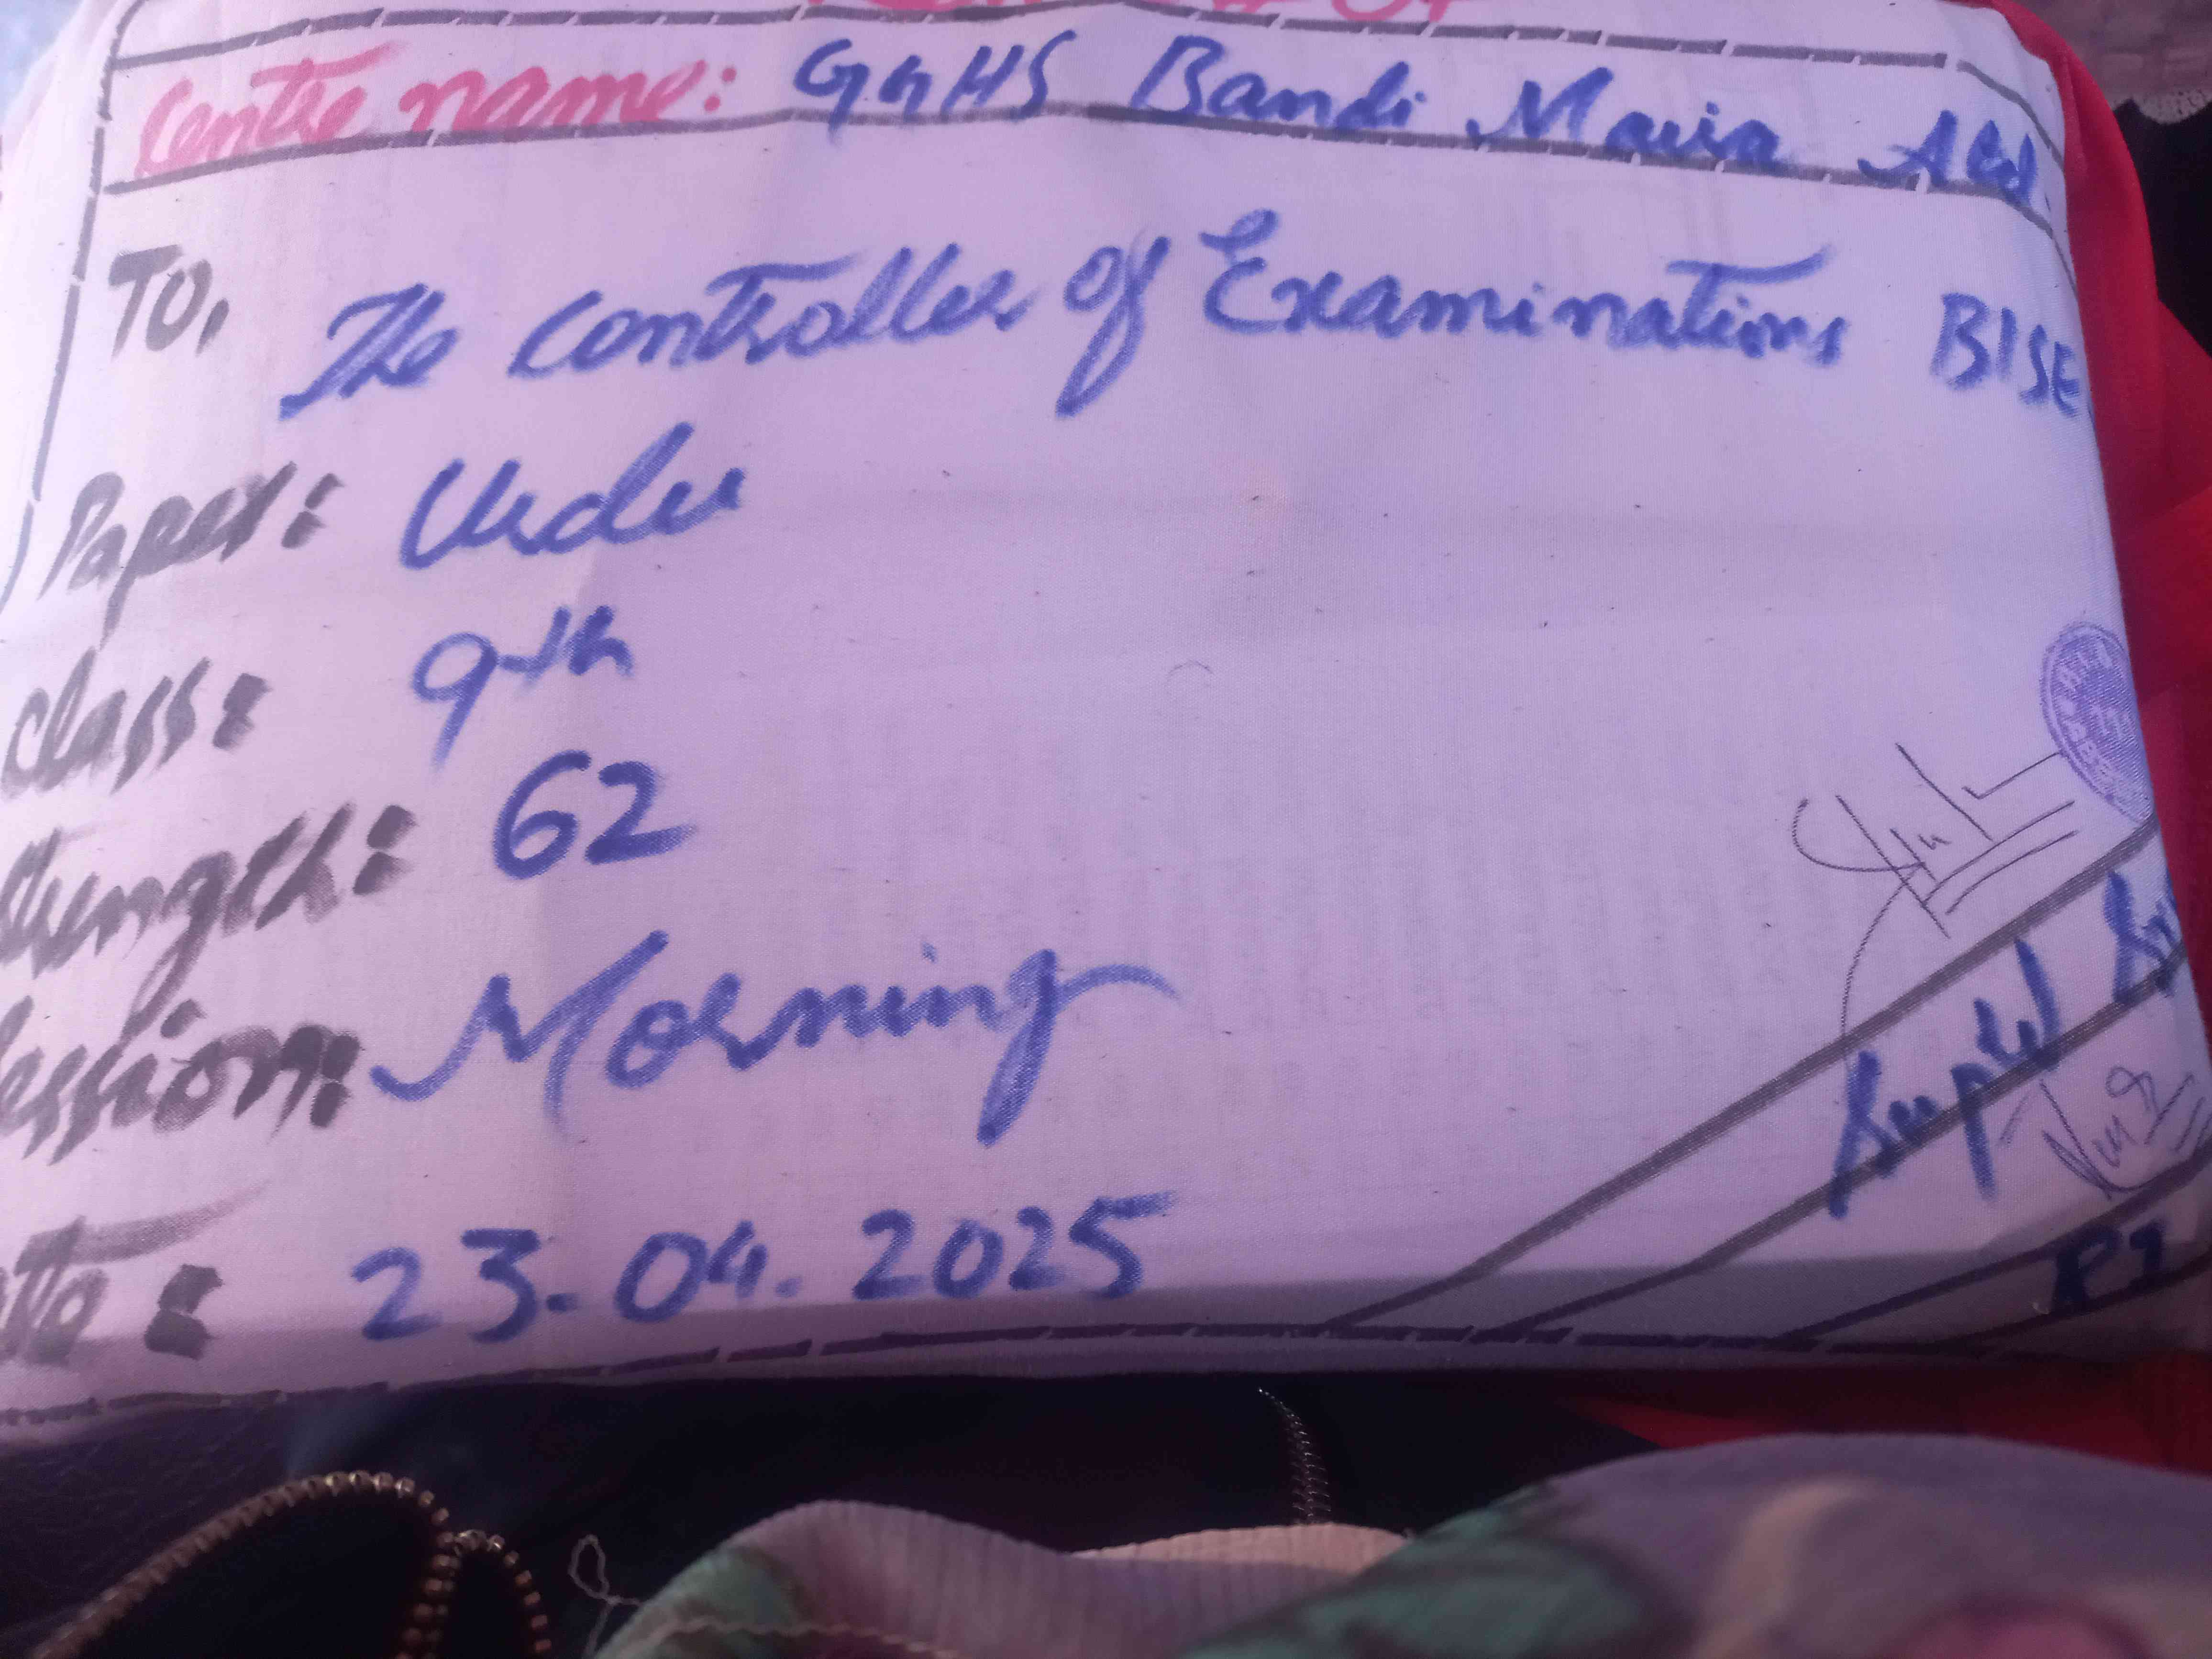 Centre name: GGHS Bandi Maira Atd.
To,
The Controller of Examinations BISE
Paper: Urdu
Class: 9th
Strength: 62
Session: Morning
23.04.2025
Supdt